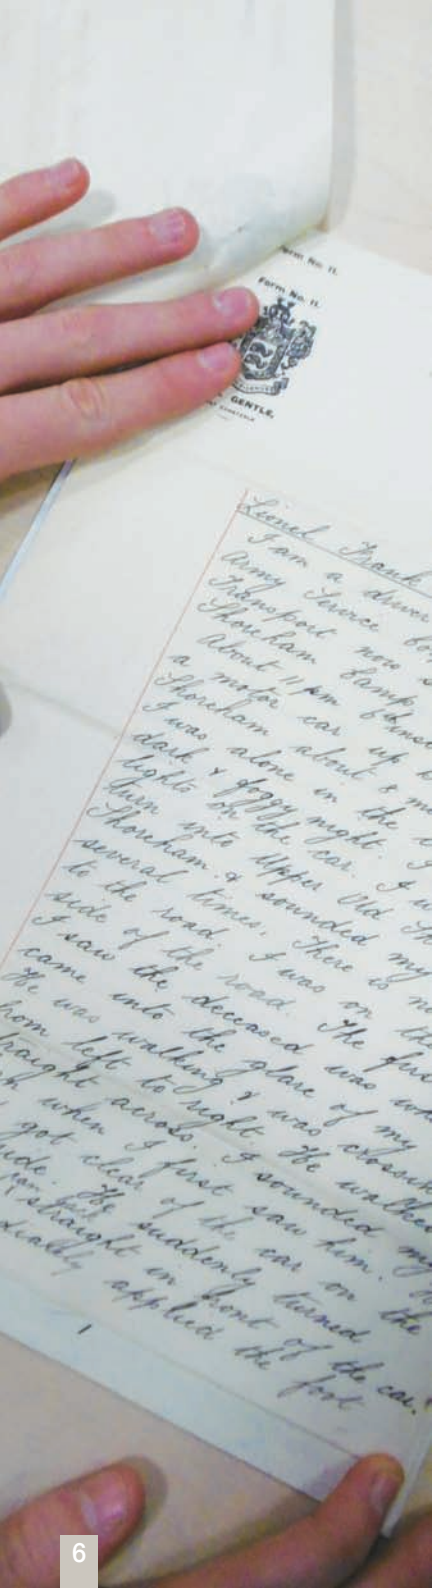 Form No. 11.
Form No. 11.
GENTLE,
CONSTABLE
Lionel Frank
I am a driver
Army Service
Transport now
Shoreham Camp.
About 11 pm
a motor car up
Shoreham about 8
I was alone in the
dark & foggy night. I
lights on the car. I
turn into Upper Old
Shoreham & sounded my
several times. There is
to the road. I was on the
side of the road. The
I saw the deceased was
came into the glare of my
He was walking & was
from left to right. He walked
straight across. I sounded my
when I first saw him.
got clear of the car on the
side. He suddenly turned
straight in front of the car.
applied the foot
6